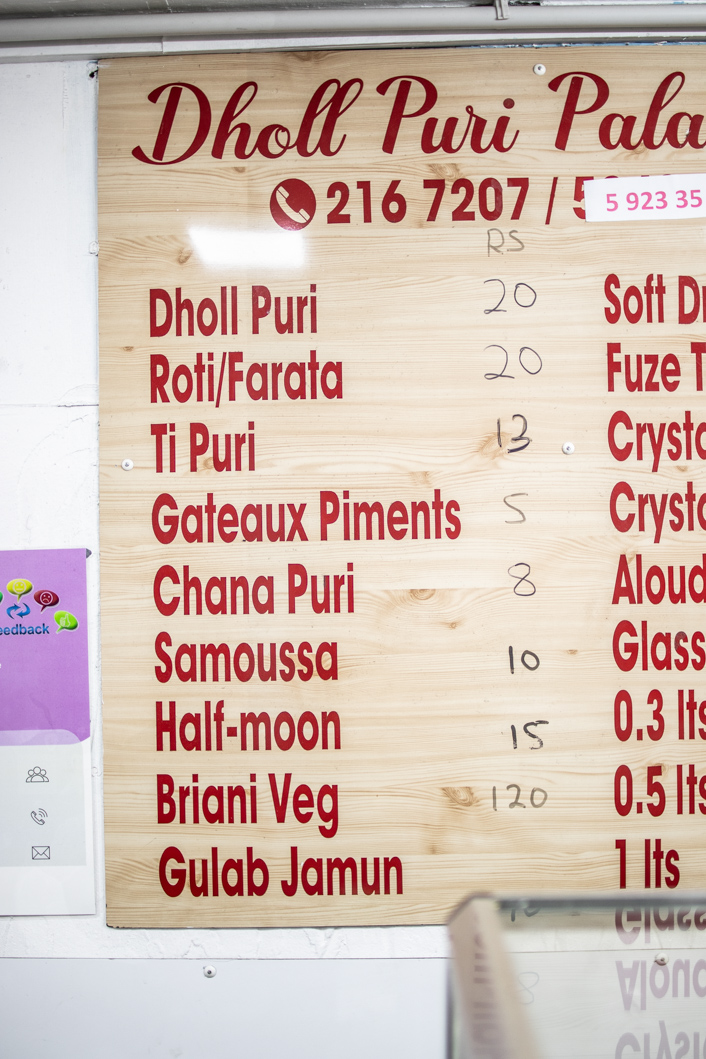 Dholl Puri Pala
216 7207 / 5
5 923 35
RS
Dholl Puri 20
Roti/Farata 20
Ti Puri 13
Gateaux Piments 5
Chana Puri 8
Samoussa 10
Half-moon 15
Briani Veg 120
Gulab Jamun
Soft Dr
Fuze T
Crysta
Crysta
Aloud
Glass
0.3 lts
0.5 lts
1 lts
eedback